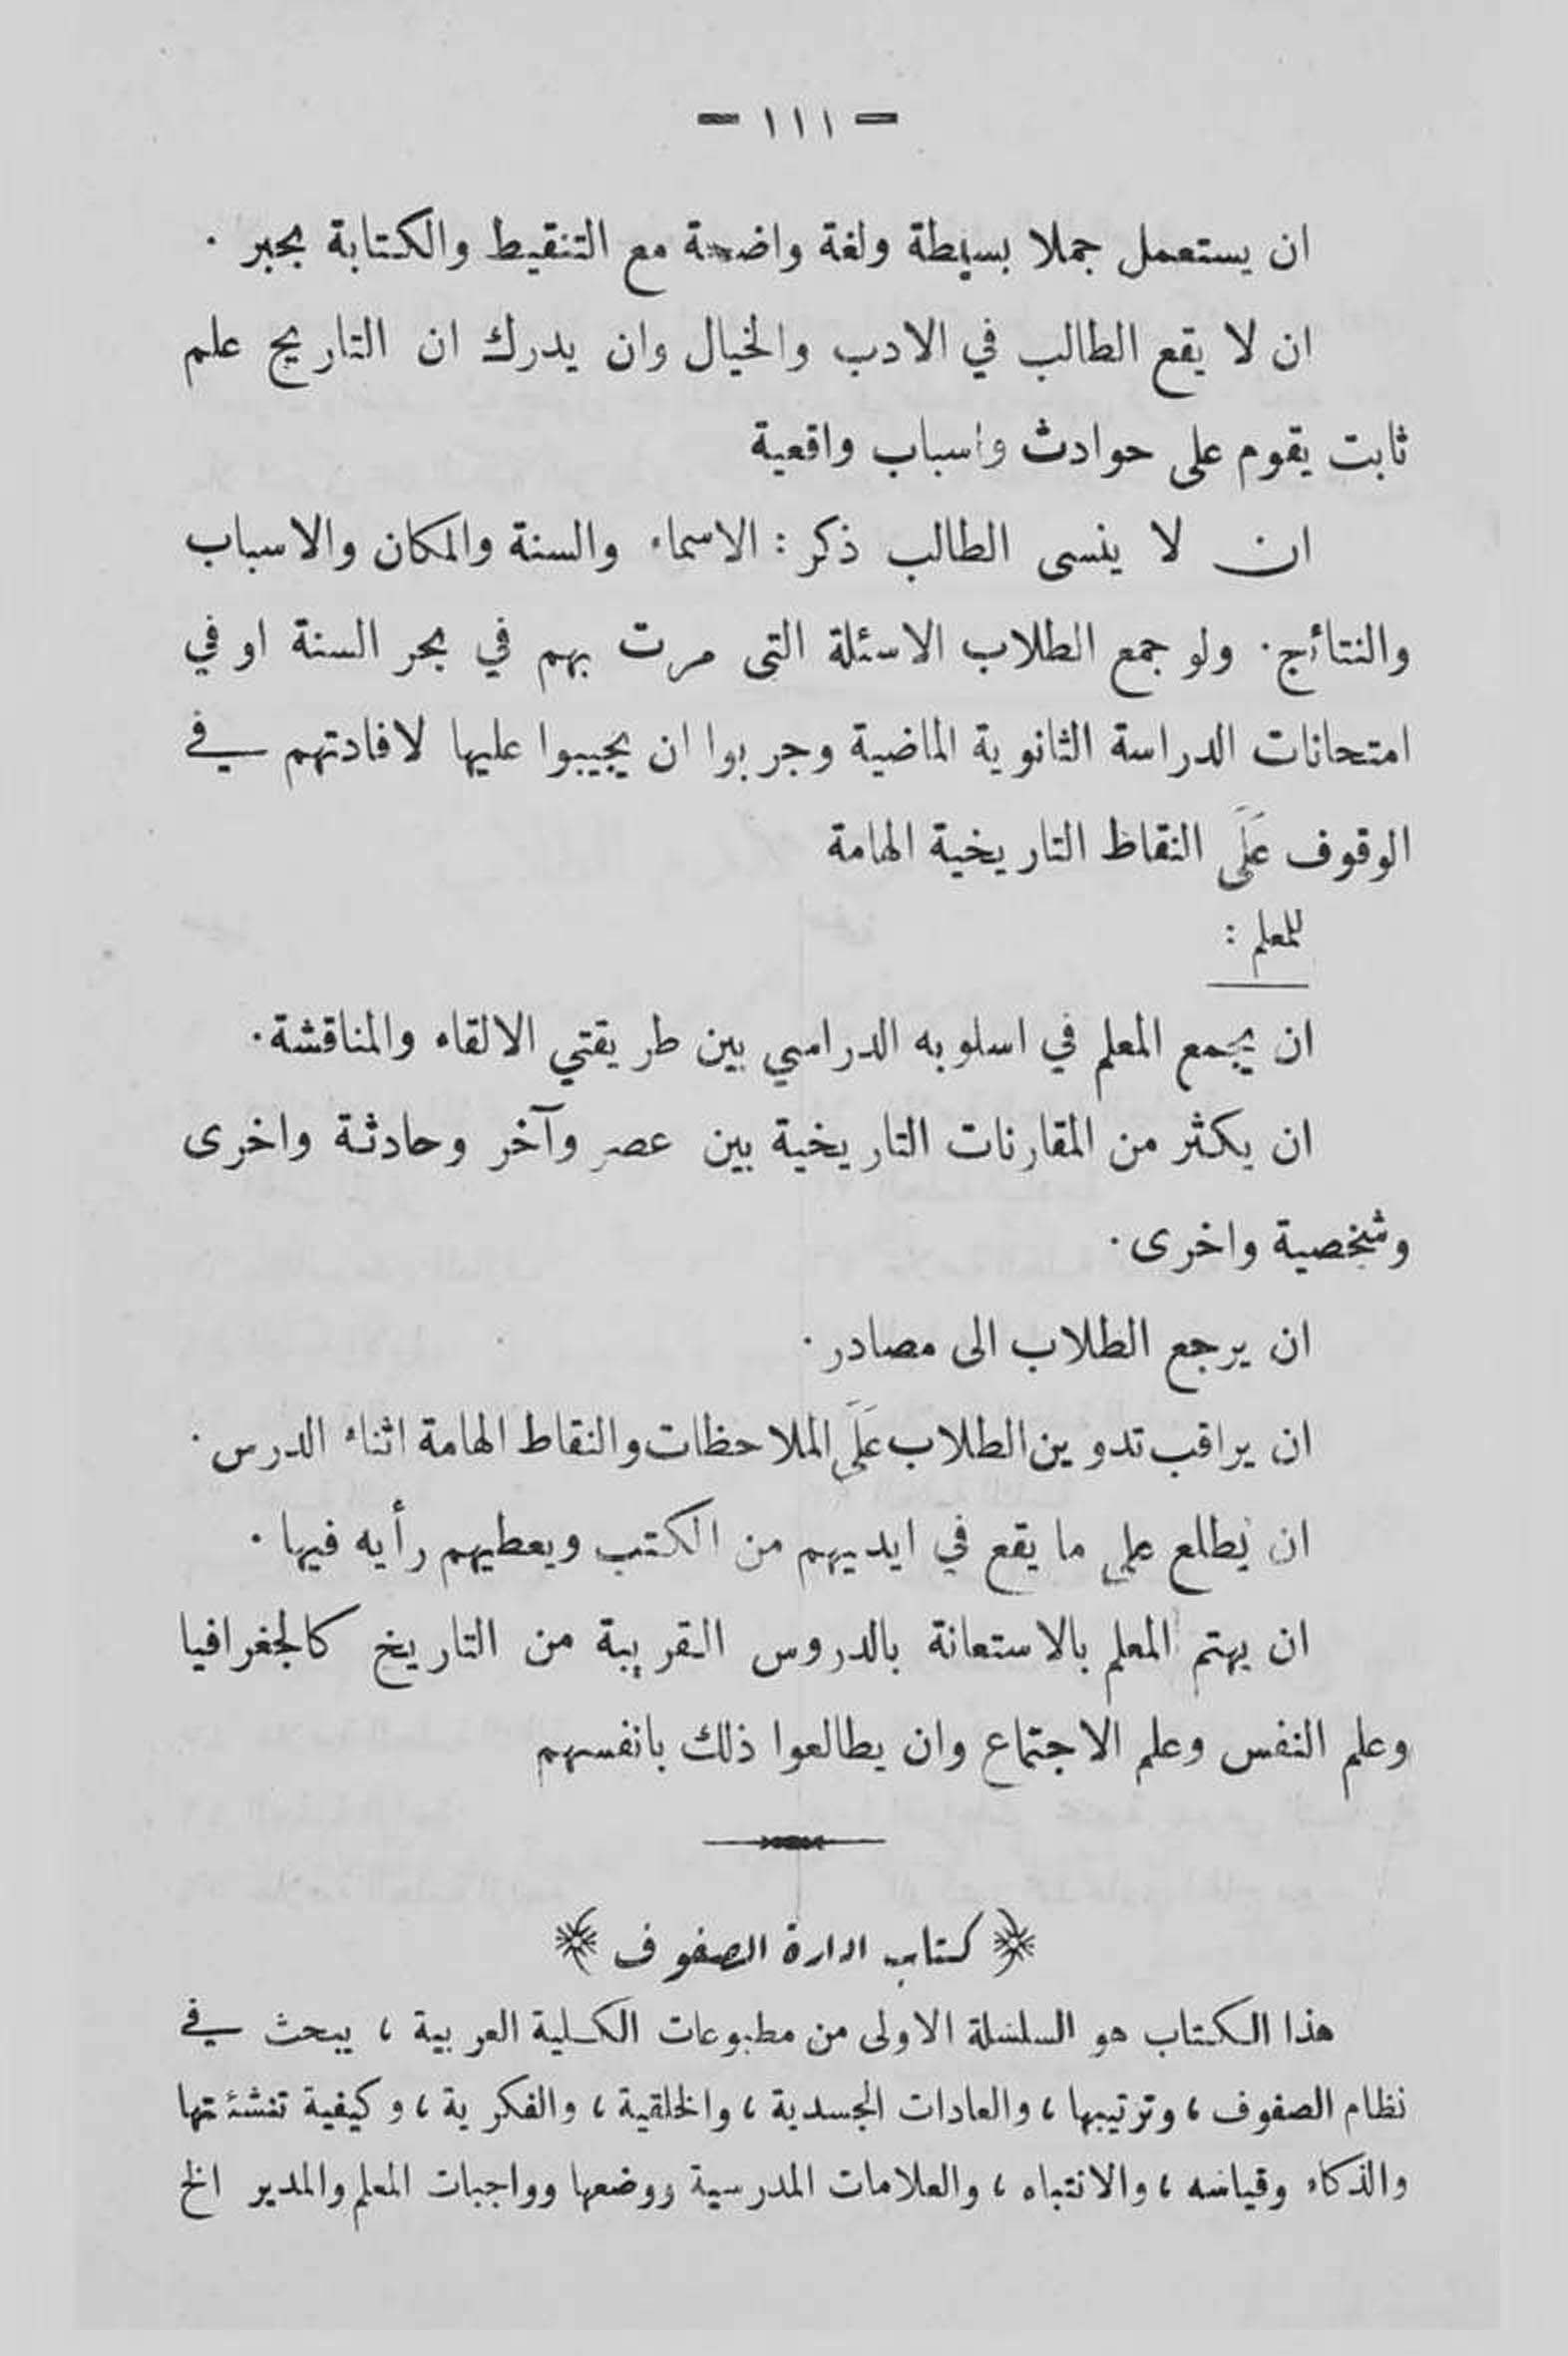 - ١١١ -
ان يستعمل جملا بسيطة ولغة واضحة مع التنقيط والكتابة بحبر .
ان لا يقع الطالب في الادب والخيال وان يدرك ان التاريخ علم
ثابت يقوم على حوادث واسباب واقعية
ان لا ينسى الطالب ذكر : الاسماء والسنة والمكان والاسباب
والنتائج . ولو جمع الطلاب الاسئلة التى مرت بهم في بحر السنة او في
امتحانات الدراسة الثانوية الماضية وجربوا ان يجيبوا عليها لافادتهم في
الوقوف عَلَى النقاط التاريخية الهامة
للمعلم :
ان يجمع المعلم في اسلوبه الدراسي بين طريقتي الالقاء والمناقشة .
ان يكثر من المقارنات التاريخية بين عصر وآخر وحادثة واخرى
وشخصية واخرى .
ان يرجع الطلاب الى مصادر .
ان يراقب تدوين الطلاب عَلَى الملاحظات والنقاط الهامة اثناء الدرس .
ان يطلع على ما يقع في ايديهم من الكتب ويعطيهم رأيه فيها .
ان يهتم المعلم بالاستعانة بالدروس القريبة من التاريخ كالجغرافيا
وعلم النفس وعلم الاجتماع وان يطالعوا ذلك بانفسهم
﴿ كتاب ادارة الصفوف ﴾
هذا الكتاب هو السلسلة الاولى من مطبوعات الكلية العربية ، يبحث في
نظام الصفوف ، وترتيبها ، والعادات الجسدية ، والخلقية ، والفكرية ، وكيفية تنشئتها
والذكاء وقياسه ، والانتباه ، والعلامات المدرسية ووضعها وواجبات المعلم والمدير الخ